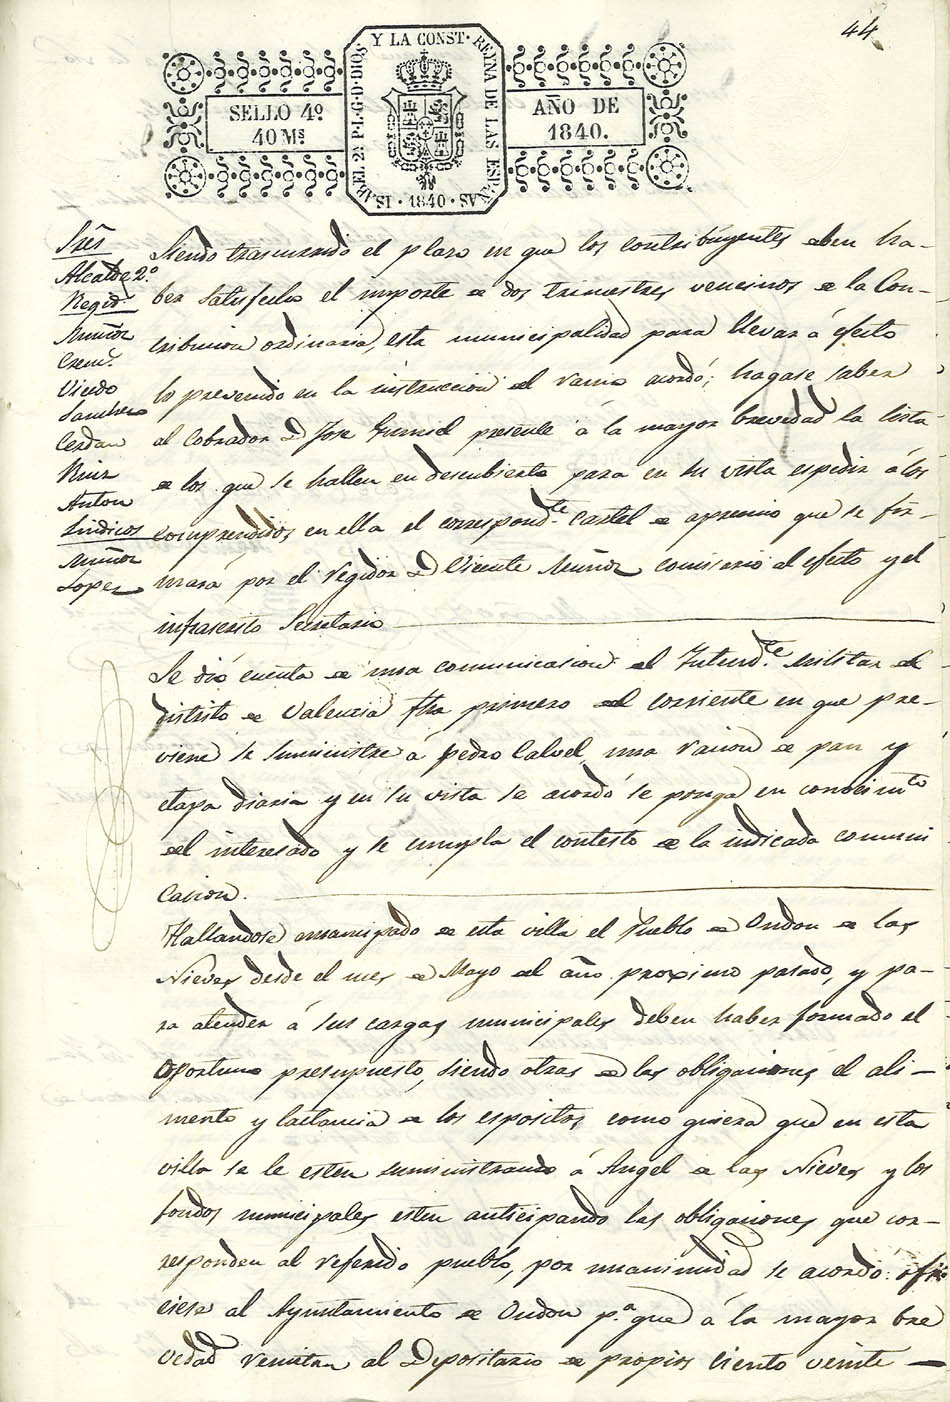 44
ISABEL 2ª P.L.G.D DIOS Y LA CONST. REINA DE LAS ESPAÑAS
1840
SELLO 4º
40 Ms
AÑO DE
1840.
Sres
Alcalde 2º
Regid.
Muñoz
Crem.
Vicedo
Sanchez
Cerdan
Ruiz
Anton
Sindicos
Muñoz
Lopez
Siendo trascurrido el plazo en que los contribuyentes deben ha-
ber satisfecho el importe de dos trimestres vencidos de la Con-
tribucion ordinaria, esta municipalidad para llevar á efecto
lo prevenido en la instruccion del ramo acordó; hagase saber
al Cobrador D. Jose presente á la mayor brevedad la lista
de los que se hallen en descubierto para en su vista espedir á los
comprendidos en ella el correspond.te Cartel de apremio que se for-
mará por el regidor D. Vicente Muñoz comisario al efecto y el
infrascrito Secretario
Se dió cuenta de una comunicacion del Intend.te militar del
distrito de Valencia fha primero del corriente en que pre-
viene se suministre á Pedro Calvel una racion de pan y
etapa diaria y en su vista se acordó se ponga en conocim.to
del interesado y se cumpla el contesto de la indicada comuni
cacion.
Hallandose emancipado de esta villa el Pueblo de Ondon de las
Nieves desde el mes de Mayo del año proximo pasado, y pa-
ra atender á sus cargas municipales deben haber formado el
oportuno presupuesto, siendo otras de las obligaciones el ali-
mento y lactancia de los espositos, como quiera que en esta
villa se le esten suministrando á Angel de las Nieves y los
fondos municipales esten anticipando las obligaciones que cor-
responden al referido pueblo, por unanimidad se acordó: ofi
ciese al Ayuntamiento de Ondon p.a que á la mayor bre
vedad remitan al Depositario de propios ciento veinte